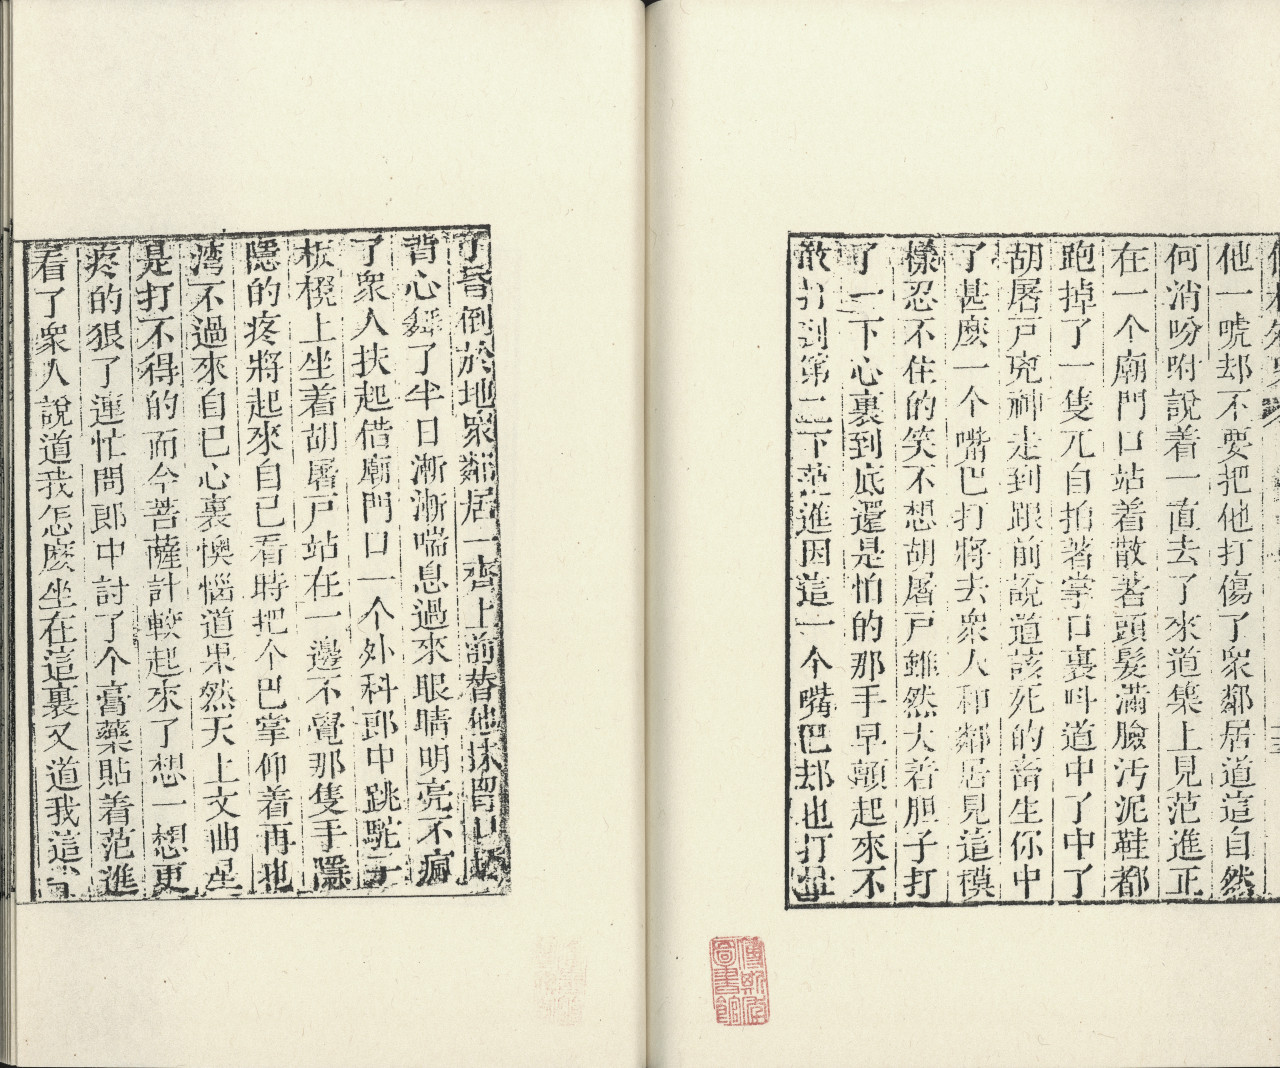 他一唬却不要把他打傷了衆鄰居道這自然
何消吩咐說着一直去了來道集上見范進正
在一个廟門口站着散著頭髮滿臉汚泥鞋都
跑掉了一隻兀自拍著掌口裏呌道中了中了
胡屠戸兇神走到跟前說道該死的畜生你中
了甚麽一个嘴巴打將去衆人和鄰居見這模
樣忍不住的笑不想胡屠戸雖然大着胆子打
了一下心裏到底還是怕的那手早顫起來不
敢打到第二下范進因這一个嘴巴却也打暈
了昏倒於地衆鄰居一齊上前替他抹胷口
背心舞了半日漸漸喘息過來眼睛明亮不瘋
了衆人扶起借廟門口一个外科郎中跳駝子
板櫈上坐着胡屠戸站在一邊不覺那隻手隱
隱的疼將起來自已看時把个巴掌仰着再也
湾不過來自已心裏懊惱道果然天上文曲星
是打不得的而今菩薩計較起來了想一想更
疼的狠了連忙問郎中討了个膏藥貼着范進
看了衆人說道我怎麽坐在這裏又道我這
傅斯年圖書館